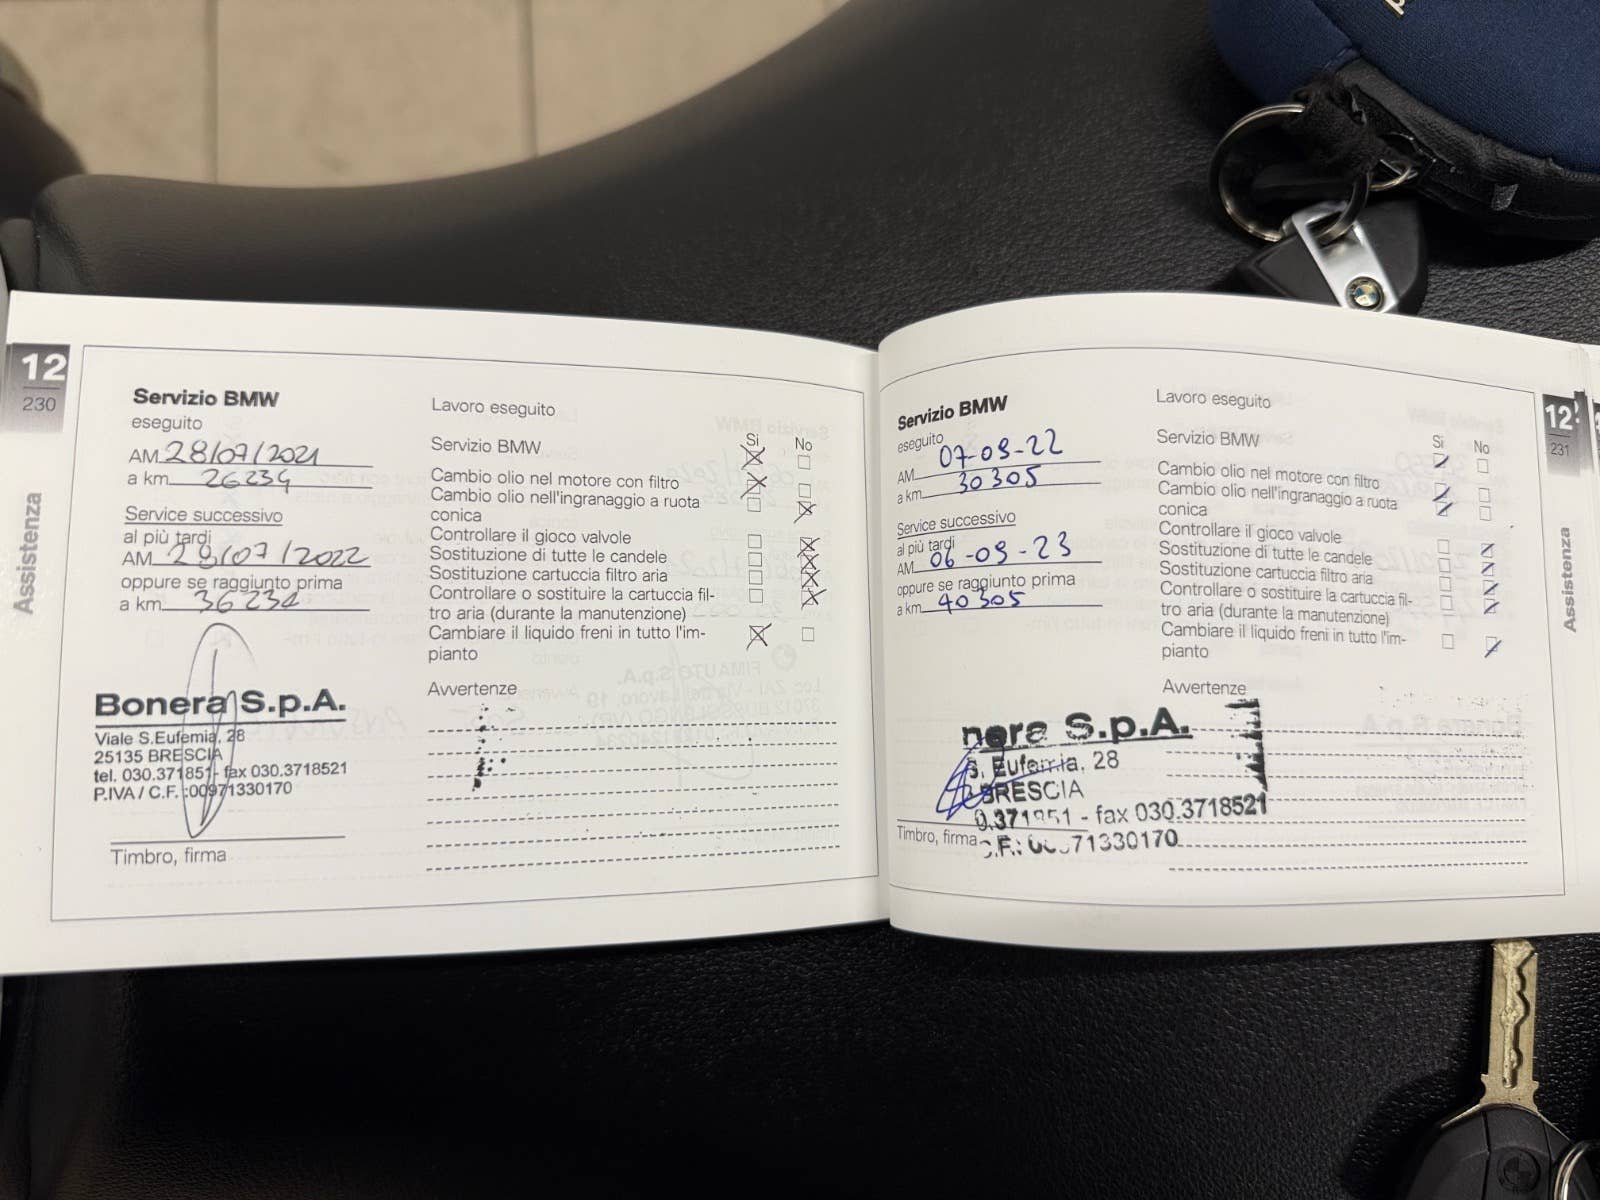 12
230
Assistenza
Servizio BMW
eseguito
AM 28/07/2021
a km 26234
Service successivo
al più tardi
AM 28/07/2022
oppure se raggiunto prima
a km 36234
Bonera S.p.A.
Viale S.Eufemia, 28
25135 BRESCIA
tel. 030.371851- fax 030.3718521
P.IVA / C.F. :00971330170
Timbro, firma
Lavoro eseguito
Si No
Servizio BMW
Cambio olio nel motore con filtro
Cambio olio nell'ingranaggio a ruota
conica
Controllare il gioco valvole
Sostituzione di tutte le candele
Sostituzione cartuccia filtro aria
Controllare o sostituire la cartuccia fil-
tro aria (durante la manutenzione)
Cambiare il liquido freni in tutto l'im-
pianto
Avvertenze
Servizio BMW
eseguito
AM 07-09-22
a km 30305
Service successivo
al più tardi
AM 06-09-23
oppure se raggiunto prima
a km 40305
nera S.p.A.
S. Eufemia, 28
BRESCIA
- fax 030.3718521
71330170
Timbro, firma
Lavoro eseguito
Si No
Servizio BMW
Cambio olio nel motore con filtro
Cambio olio nell'ingranaggio a ruota
conica
Controllare il gioco valvole
Sostituzione di tutte le candele
Sostituzione cartuccia filtro aria
Controllare o sostituire la cartuccia fil-
tro aria (durante la manutenzione)
Cambiare il liquido freni in tutto l'im-
pianto
Avvertenze
12
231
Assistenza